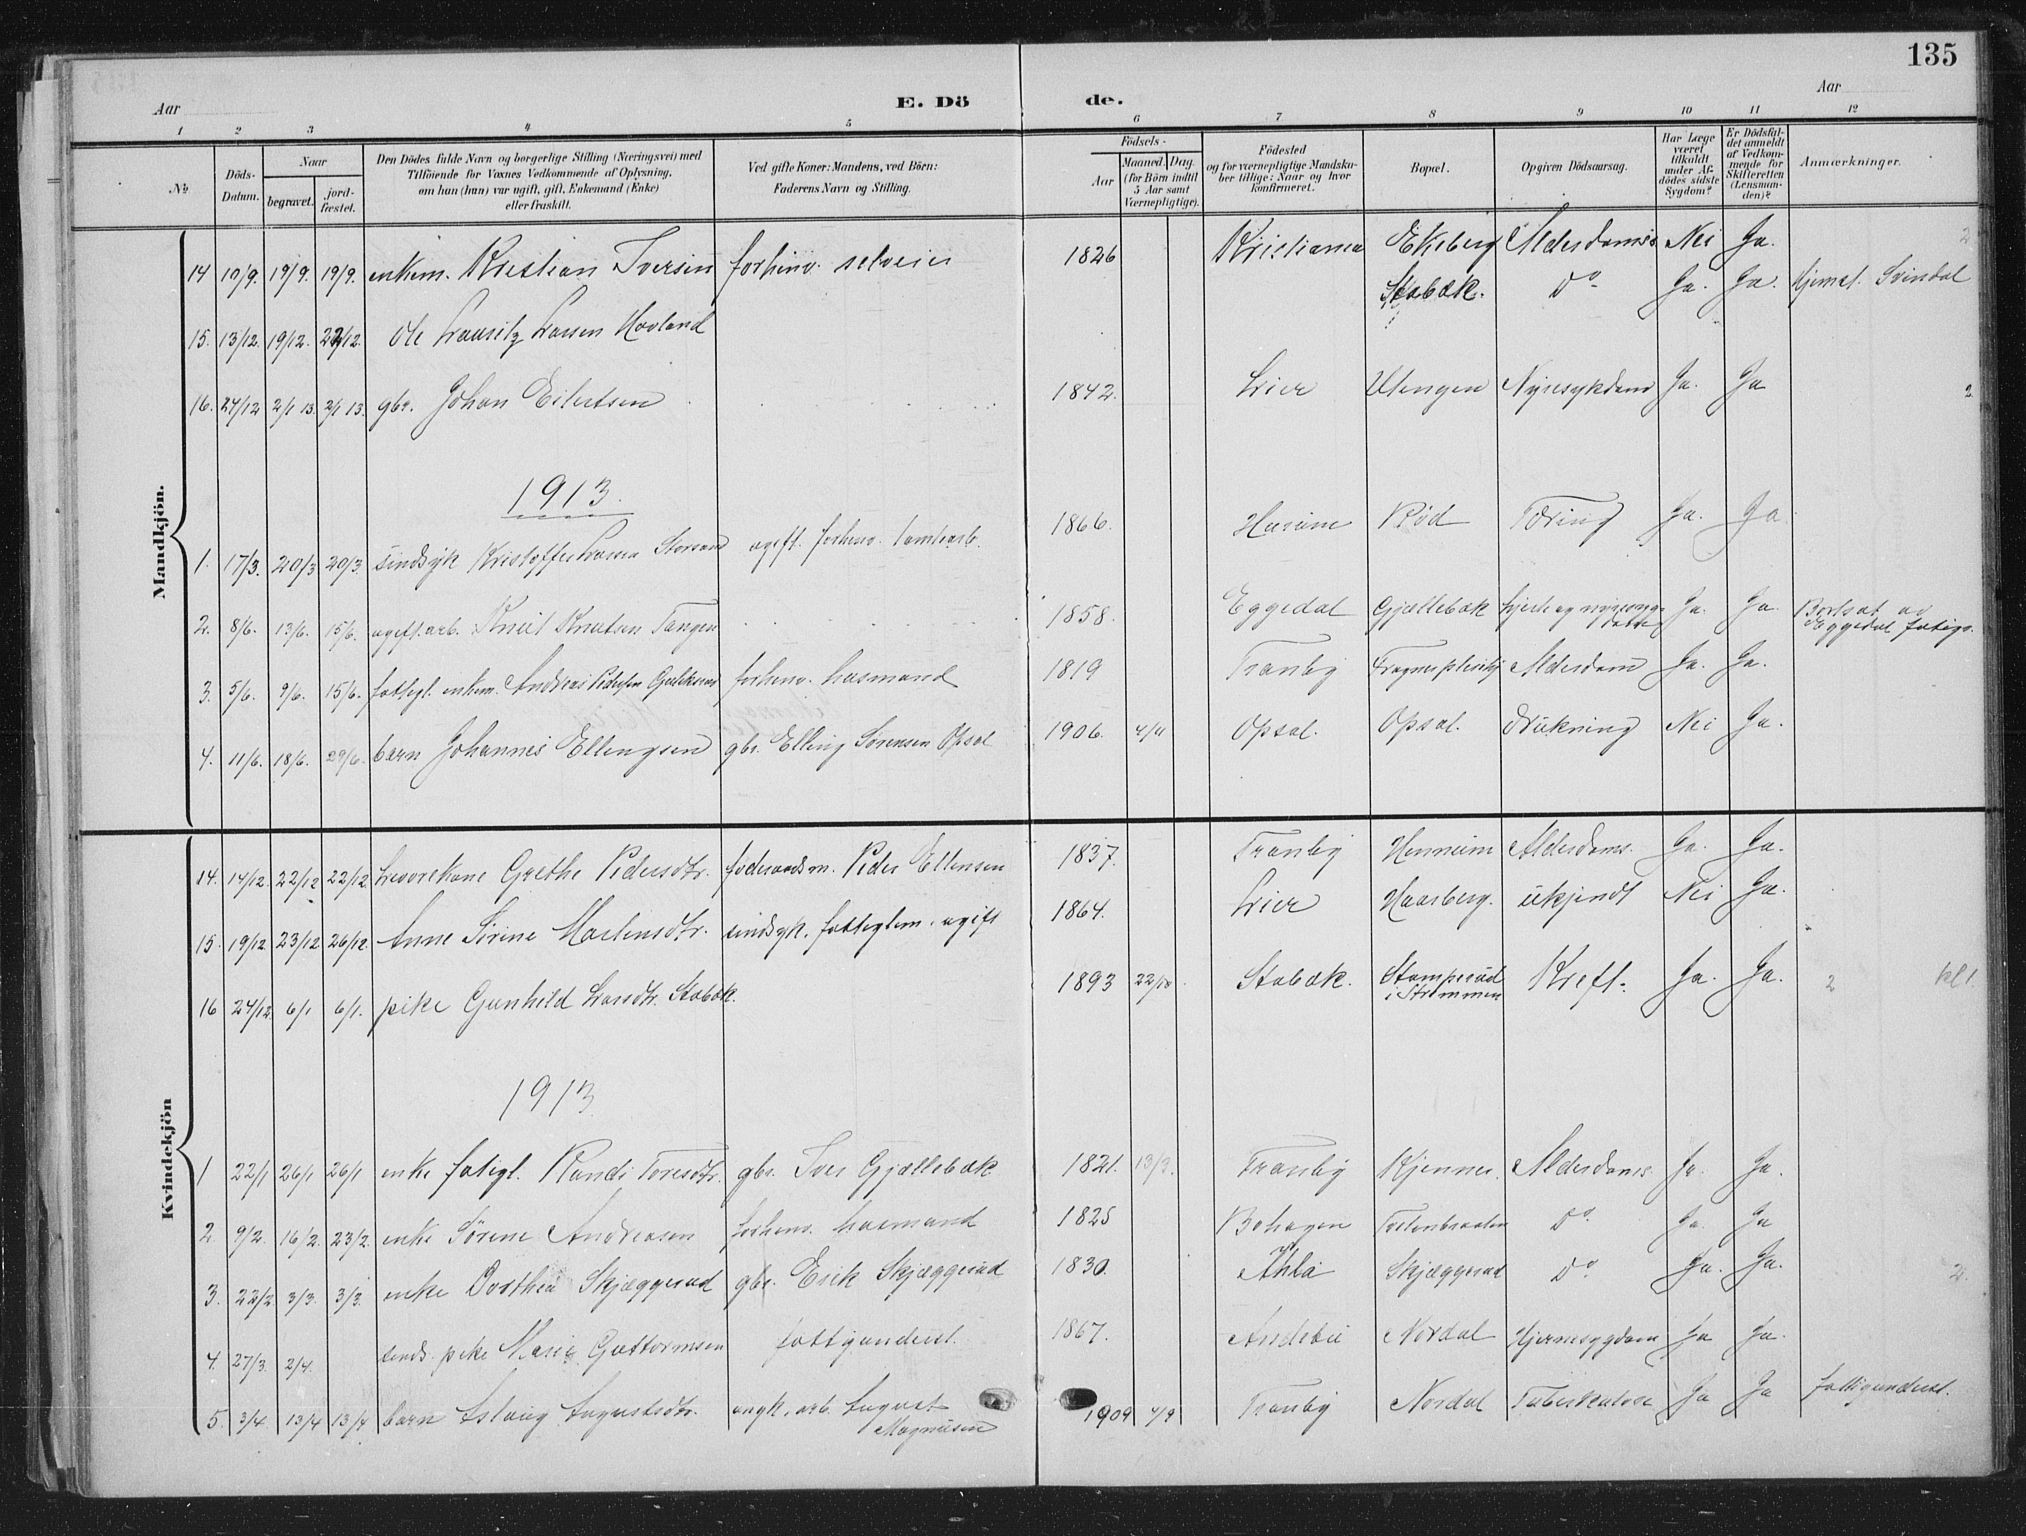 135
Aar
E. Dö de.
Aar
1 2 3 4 5 6 7 8 9 10 11 12
No
Döds-Datum.
Naar
begravet.
jord-fæstet.
Den Dödes fulde Navn og borgerlige Stilling (Næringsvei) med
Tilföiende for Voxnes Vedkommende af Oplysning,
om han (hun) var ugift, gift, Enkemand (Enke)
eller fraskilt.
Ved gifte Koner: Mandens, ved Börn:
Faderens Navn og Stilling.
Födsels-
Aar
Maaned. Dag.
(for Börn indtil
5 Aar samt
Værnepligtige).
Födested
og for værnepligtige Mandska-
ber tillige: Naar og hvor
konfirmeret.
Bopæl.
Opgiven Dödsaarsag.
Har Læge
været
tilkaldt
under Af-
dödes sidste
Sygdom?
Er Dödsfal-
det anmeldt
af Vedkom-
mende for
Skifteretten
(Lensman-
den)?
Anmærkninger.
Mandkjön.
14 10/9. 19/9. 19/9. enkem. Kristian Iversen forhenv. selveier 1826 Kristiania Ekeberg Alderdomss. Nei Ja. 2
15. 13/12. 19/12. 22/12. Ole Lauritz Larsen Hovland Stabæk. Do Ja. Ja. Hjemst. Svindal
16. 24/12 2/1 13. 2/1 13. gbr. Johan Eilertsen 1842. Lier Utengen Nyresykdom Ja. Ja 2
1913.
1. 17/3. 20/3 20/3. sindsyk Kristoffer Larsen Storsand ugift. forhenv. 1866. Hurum Rød Tæring Ja. Ja
2. 8/6. 13/6. 15/6. ugift. arb. Knut Knutsen Tangen 1858. Eggedal Gjællebæk hjerte og nyresyg- Ja. Ja. Bortsat av Eggedal fatigv.
3. 5/6. 9/6. 15/6. fattigl. enkem. Andreas Pedersen forhenv. husmand 1819 Tranby Alderdom Ja. Ja.
4. 11/6. 18/6. 29/6. barn Johannes Ellingsen gbr. Elling Sørensen Opsal 1906. 4/4 Opsal. Opsal. Drukning Nei Ja.
Kvindekjön
14. 14/12. 22/12 22/12. Grethe Pedersdtr. føderaadsm. Peder Ellensen 1837. Tranby Hennum Alderdoms. Ja. Ja.
15. 19/12 23/12 26/12. Anne Sirine Martinsdtr. sindsyk. fattiglem. ugift 1864. Lier Haasberg. ukjendt Nei Ja.
16 24/12 6/1 6/1. pike Gunhild Larsdtr. Stabæk. 1893 22/10. Stabæk. Stamperud i Strømmen Kreft. Ja. Ja. 2 kl 1.
1913
1 22/1 26/1 26/1 enke fatigl. Randi Toresdtr. gbr. Iver Gjællebæk 1821. 13/3. Tranby Kjenner. Alderdoms. Ja. Ja.
2. 9/2. 16/2. 23/2. enke Sørene Andreasen forhenv. husmand 1825 Bohagen Do. Ja. Ja
3. 22/2 3/3. 3/3. enke Dorthea Skjæggerud gbr. Erik Skjæggerud 1830. Skjæggerud Do. Ja. Ja. 2.
4. 27/3. 2/4. sinds. pike Marie Guttormsen fattigunderst. 1867. Andebu Nordal Hjernesygdom Ja Ja.
5. 3/4 13/4 13/4 barn Aslaug Augustsdtr. arb. August Magnusen 1909 4/9 Tranby Nordal Tuberkulose Ja Ja fattigunderst.